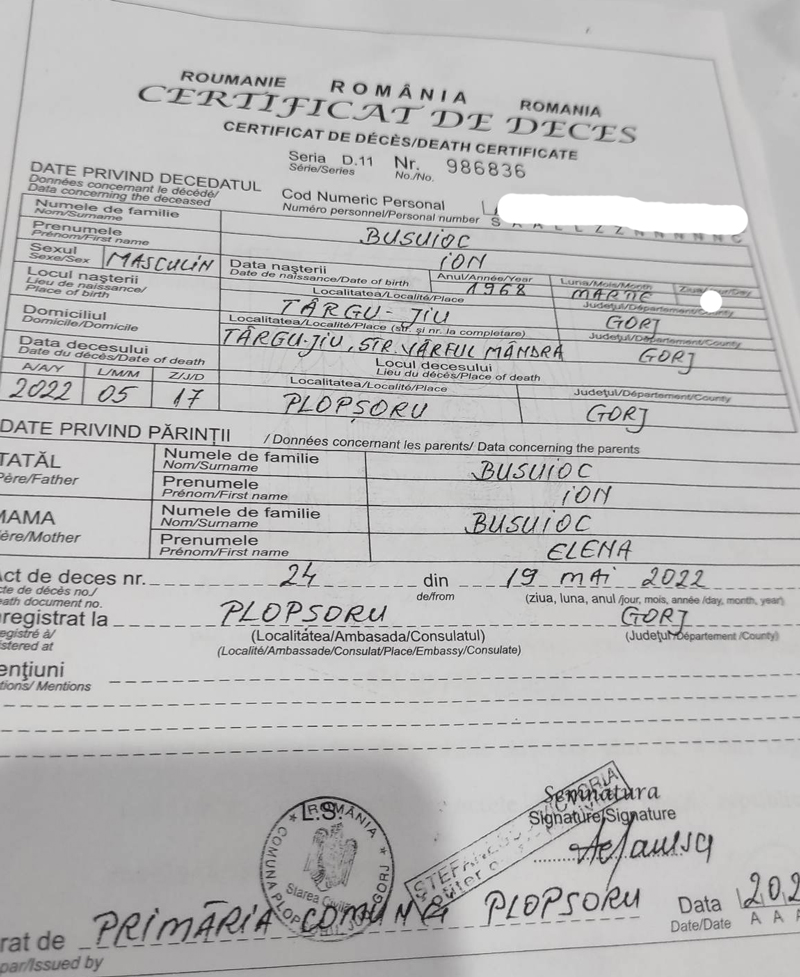 ROUMANIE ROMÂNIA ROMANIA
CERTIFICAT DE DECES
CERTIFICAT DE DÉCÈS/DEATH CERTIFICATE
Seria D.11 Nr. 986836
Série/Series No./No.
DATE PRIVIND DECEDATUL
Données concernant le décédé/
Data concerning the deceased
Cod Numeric Personal
Numéro personnel/Personal number
S A A L L Z Z N N N N N C
Numele de familie
Nom/Surname
BUSUIOC
Prenumele
Prénom/First name
ION
Sexul
Sexe/Sex
MASCULIN
Data nașterii
Date de naissance/Date of birth
Anul/Année/Year
1968
Luna/Mois/Month
MARTIE
Locul nașterii
Lieu de naissance/
Place of birth
Localitatea/Localité/Place
TÂRGU-JIU
Județul/Département/County
GORJ
Domiciliul
Domicile/Domicile
Localitatea/Localité/Place (str. și nr. la completare)
TÂRGU-JIU, STR. VÂRFUL MÂNDRA
Județul/Département/County
GORJ
Data decesului
Date du décès/Date of death
Locul decesului
Lieu du décès/Place of death
A/A/Y L/M/M Z/J/D
2022 05 17
Localitatea/Localité/Place
PLOPȘORU
Județul/Département/County
GORJ
DATE PRIVIND PĂRINȚII / Données concernant les parents/ Data concerning the parents
TATĂL
Père/Father
Numele de familie
Nom/Surname
BUSUIOC
Prenumele
Prénom/First name
ION
MAMA
ère/Mother
Numele de familie
Nom/Surname
BUSUIOC
Prenumele
Prénom/First name
ELENA
ct de deces nr. 24 din 19 MAI 2022
cte de décès no./
ath document no.
de/from (ziua, luna, anul /jour, mois, année /day, month, year)
registrat la PLOPSORU GORJ
egistré à/
istered at
(Localitatea/Ambasada/Consulatul)
(Localité/Ambassade/Consulat/Place/Embassy/Consulate)
(Județul/Département /County)
ențiuni
tions/ Mentions
L.S.
ROMÂNIA
COMUNA PLOP
GORJ
Starea Civilă
Semnătura
Signature/Signature
rat de PRIMĂRIA COMUNEI PLOPSORU
par/Issued by
Data 202
Date/Date A A A